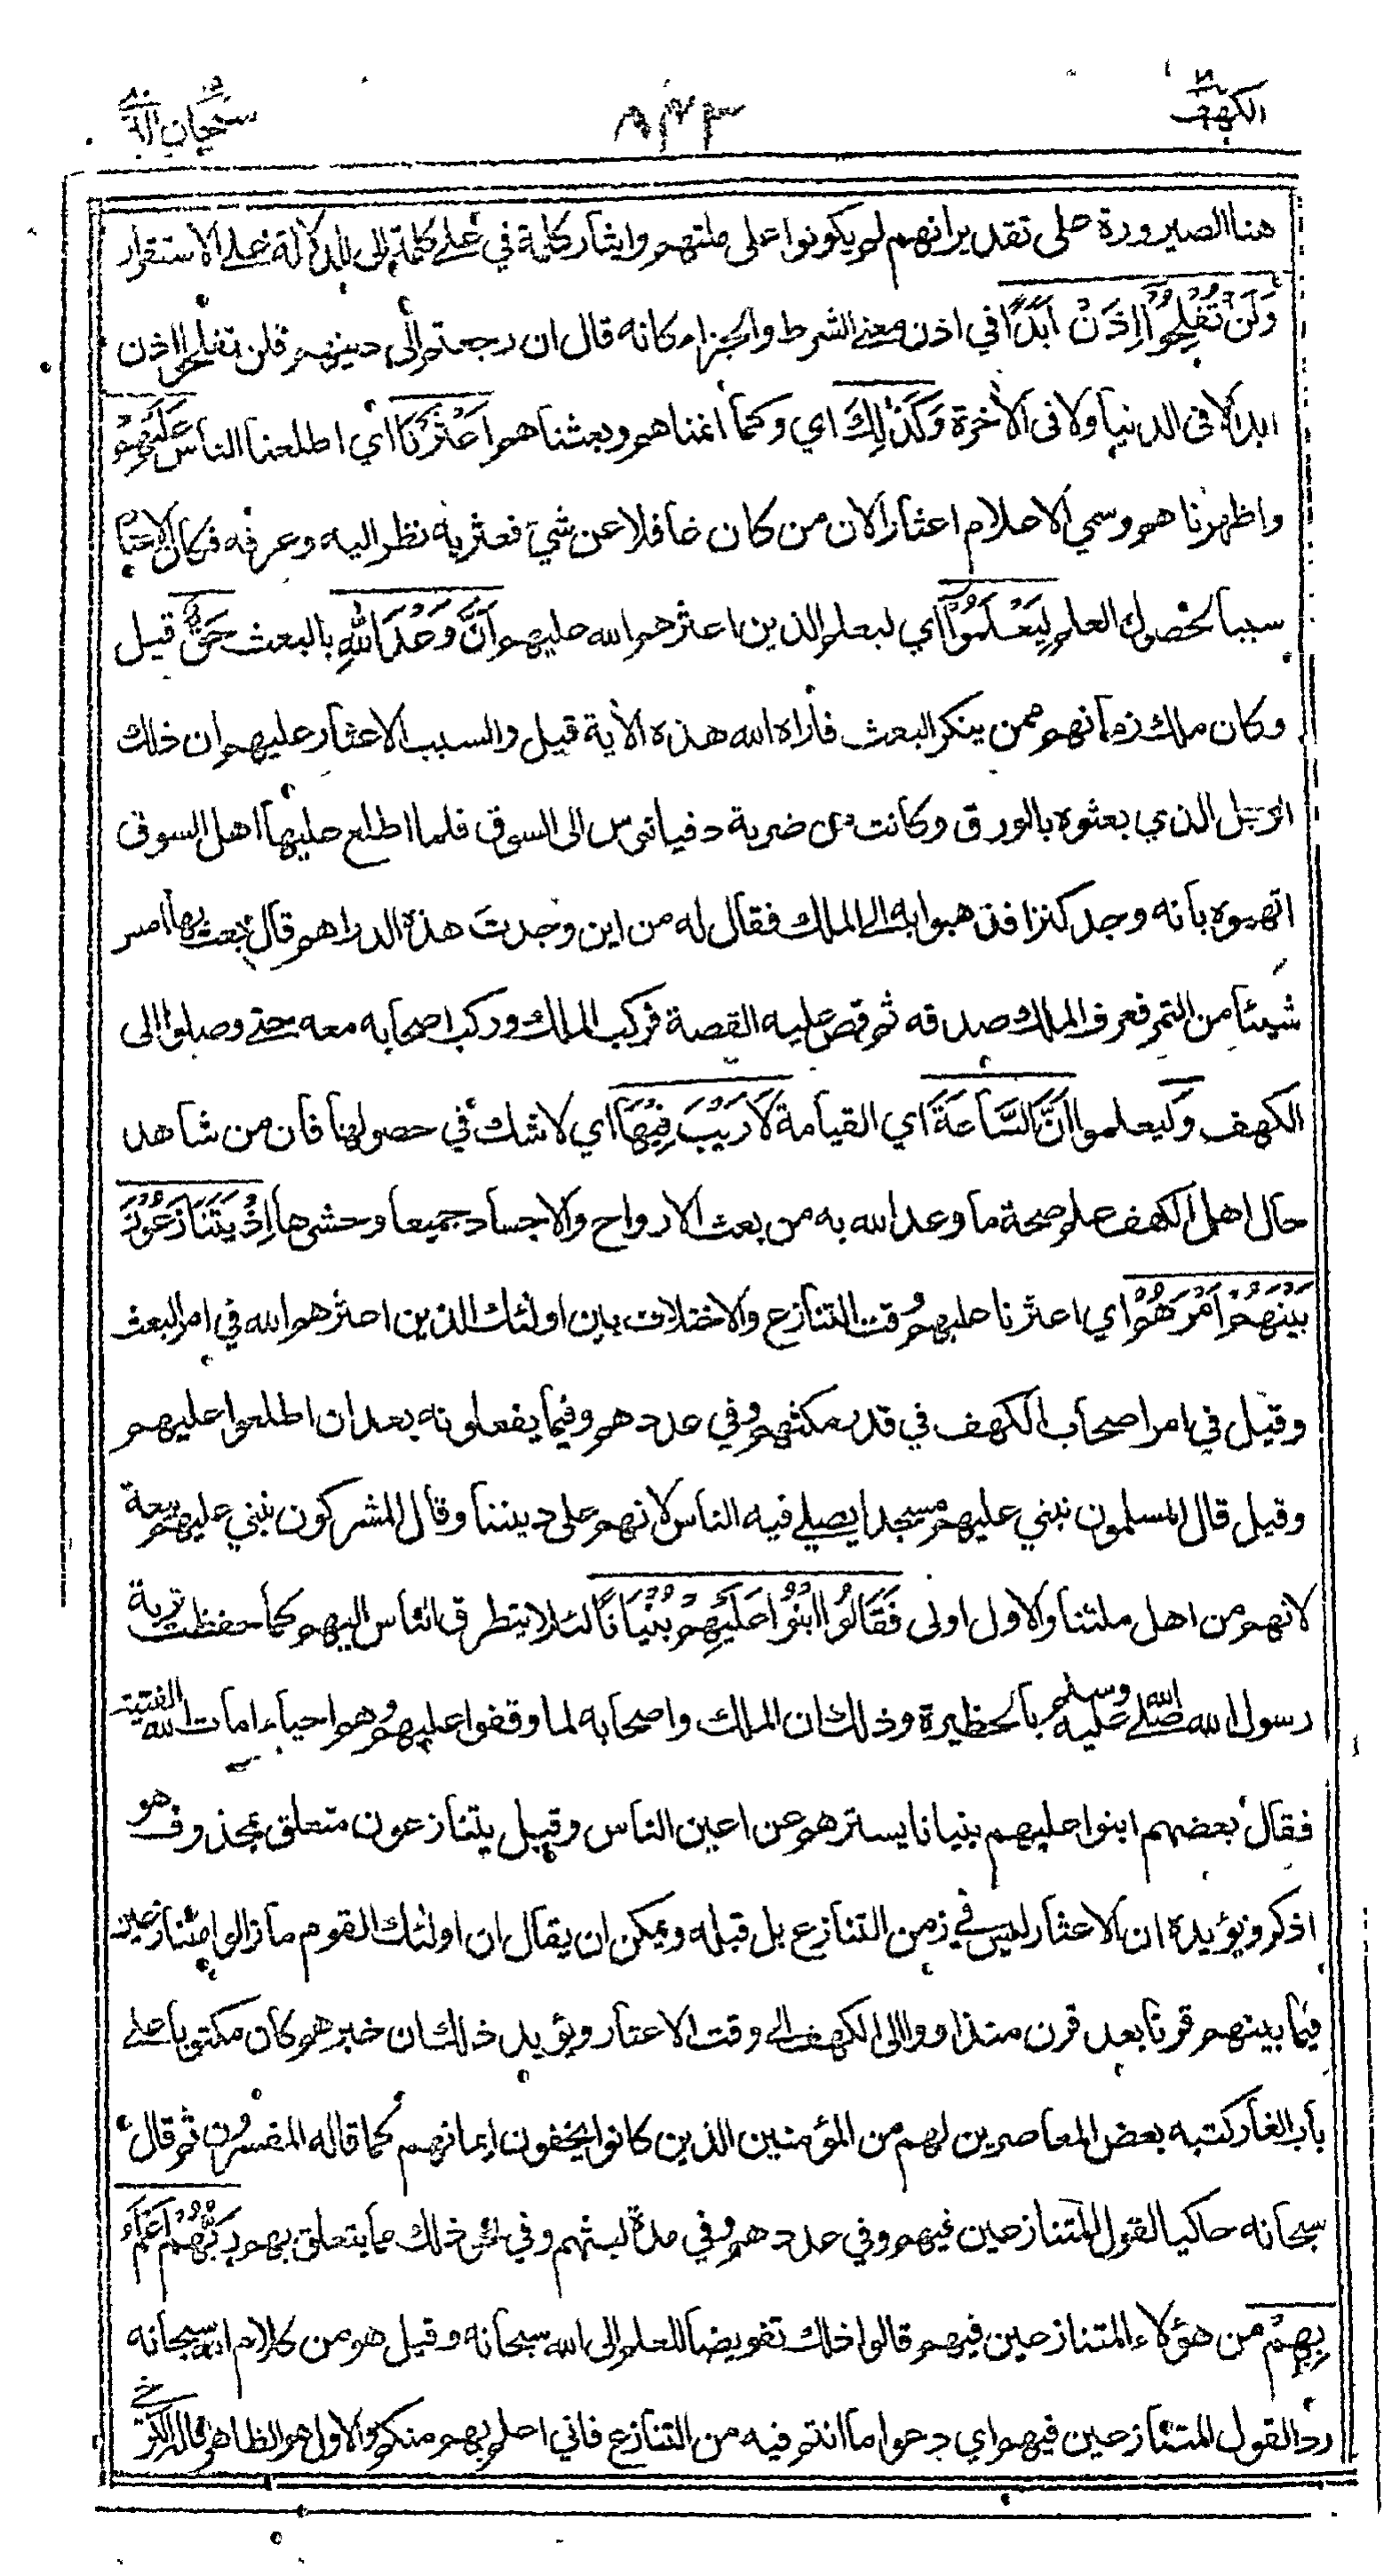 الكهف
٨٤٣
سبحان الذي
هنا الصيرورة على تقدير انهم لم يكونوا على ملتهم وايثار كلمة في على كلمة إلى للدلالة على الاستقرار
وَلَنْ تُفْلِحُوْٓا اِذَنْ اَبَدًا في اذن معنى الشرط والجزاء كانه قال ان رجعتم إلى دينهم فلن تفلحوا اذن
ابدا لا فى الدنيا ولا فى الأخرة وَكَذٰلِكَ اي وكما انمناهم وبعثناهم اَعْثَرْنَا اي اطلعنا الناس عَلَيْهِمْ
واظهرناهم وسمي الاعلام اعثار الان من كان غافلا عن شيء فعثر به نظر اليه وعرفه فكان الاعثار
سببا لحصول العلم لِيَعْلَمُوْٓا اي ليعلم الذين اعثرهم الله عليهم اَنَّ وَعْدَ اللّٰهِ بالبعث حَقٌّ قيل
وكان ملك زمانهم ممن ينكر البعث فأراه الله هذه الأية قيل والسبب الاعثار عليهم ان ذلك
الرجل الذي بعثوه بالورق وكانت من ضربة دقيانوس الى السوق فلما اطلع عليها اهل السوق
اتهموه بأنه وجد كنزا فذهبوا به الى الملك فقال له من اين وجدت هذه الدراهم قال بعت بها امس
شيئا من التمر فعرف الملك صدقه ثم قص عليه القصة فركب الملك وركب اصحابه معه حتى وصلوا الى
الكهف وَليعلموا اَنَّ السَّاعَةَ اي القيامة لَا رَيْبَ فِيْهَا اي لا شك في حصولها فأن من شاهد
حال اهل الكهف علم صحة ما وعد الله به من بعث الارواح والاجساد جميعا وحشرها اِذْ يَتَنَازَعُوْنَ
بَيْنَهُمْ اَمْرَهُمْ اي اعثرنا عليهم وقت التنازع والاختلاف بين اولئك الذين اعثرهم الله في امر البعث
وقيل في امر اصحاب الكهف في قدر مكثهم وفي عددهم وفيما يفعلونه بعد ان اطلعوا عليهم
وقيل قال المسلمون نبني عليهم مسجدا يصلي فيه الناس لانهم على ديننا وقال المشركون نبني عليهم بيعة
لانهم من اهل ملتنا والاول اولى فَقَالُوا ابْنُوْا عَلَيْهِمْ بُنْيَانًا لئلا يتطرق الناس اليهم كما حفظت تربة
رسول الله صلى الله عليه وسلم بالحظيرة وذلك ان الملك واصحابه لما وقفوا عليهم وهم احياء امات الله الفتية
فقال بعضهم ابنوا عليهم بنيانا يسترهم عن اعين الناس وقيل يتنازعون متعلق بمحذوف هو
اذكر ويؤيده ان الاعثار ليس في زمن التنازع بل قبله ويمكن ان يقال ان اولئك القوم ما زالوا متنازعين
فيما بينهم قرنا بعد قرن منذ اووا الى الكهف الى وقت الاعثار ويؤيد ذلك ان خبرهم كان مكتوبا على
باب الغار كتبه بعض المعاصرين لهم من المؤمنين الذين كانوا يخفون ايمانهم كما قاله المفسرون ثم قال
سبحانه حاكيا لقول المتنازعين فيهم وفي عددهم وفي مدة لبثهم وفي نحو ذلك مما يتعلق بهم رَبُّهُمْ اَعْلَمُ
بِهِمْ من هؤلاء المتنازعين فيهم قالوا ذلك تفويضا للعلم الى الله سبحانه وقيل هو من كلام الله سبحانه
ردا لقول المتنازعين فيهم اي دعوا ما انتم فيه من التنازع فاني اعلم بهم منكم والاول هو الظاهر